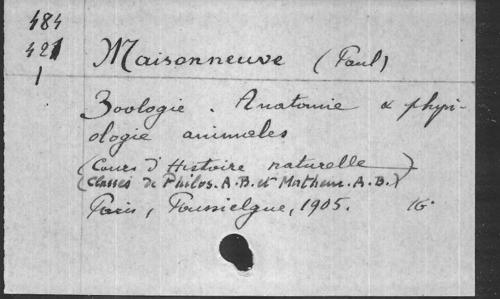 484
421
1
Maisonneuve (Paul)
Zoologie. Anatomie & physi-
ologie animales
(Cours d'Histoire naturelle)
(Classes de Philos. A.B. et Mathem. A.B.)
Paris, Poussielgue, 1905. 16°